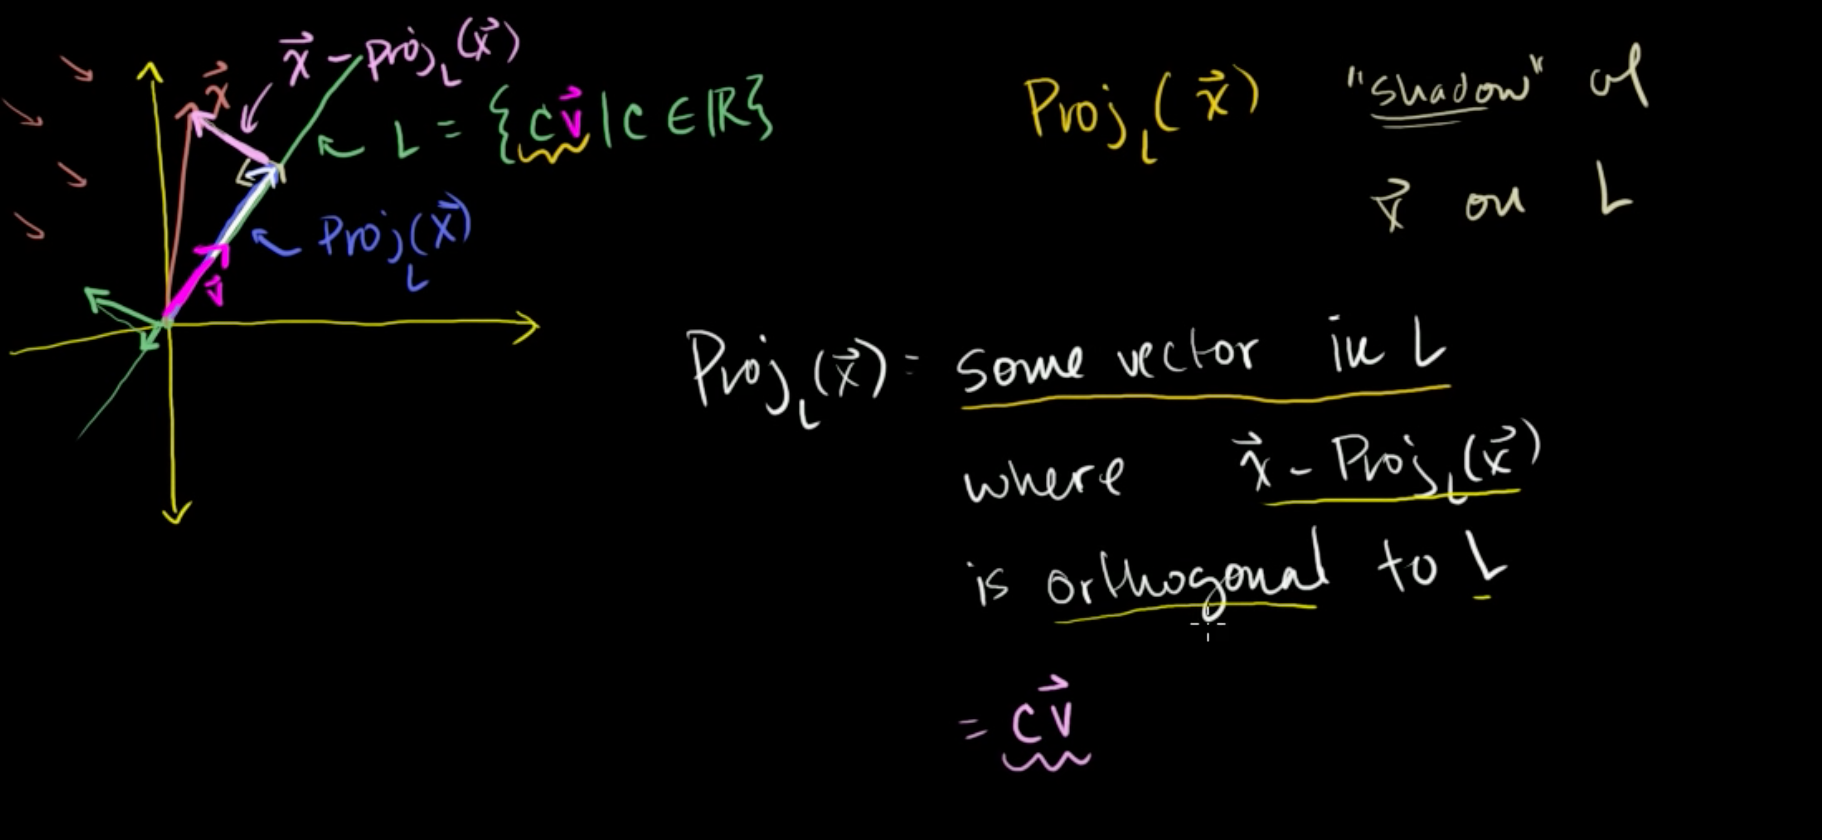 x⃗ - Proj_L(x⃗)
x⃗
L = {c v⃗ | c ∈ ℝ}
Proj_L(x⃗)
v⃗
Proj_L(x⃗) "shadow" of
x⃗ on L
Proj_L(x⃗) = some vector in L
where x⃗ - Proj_L(x⃗)
is orthogonal to L
= c v⃗